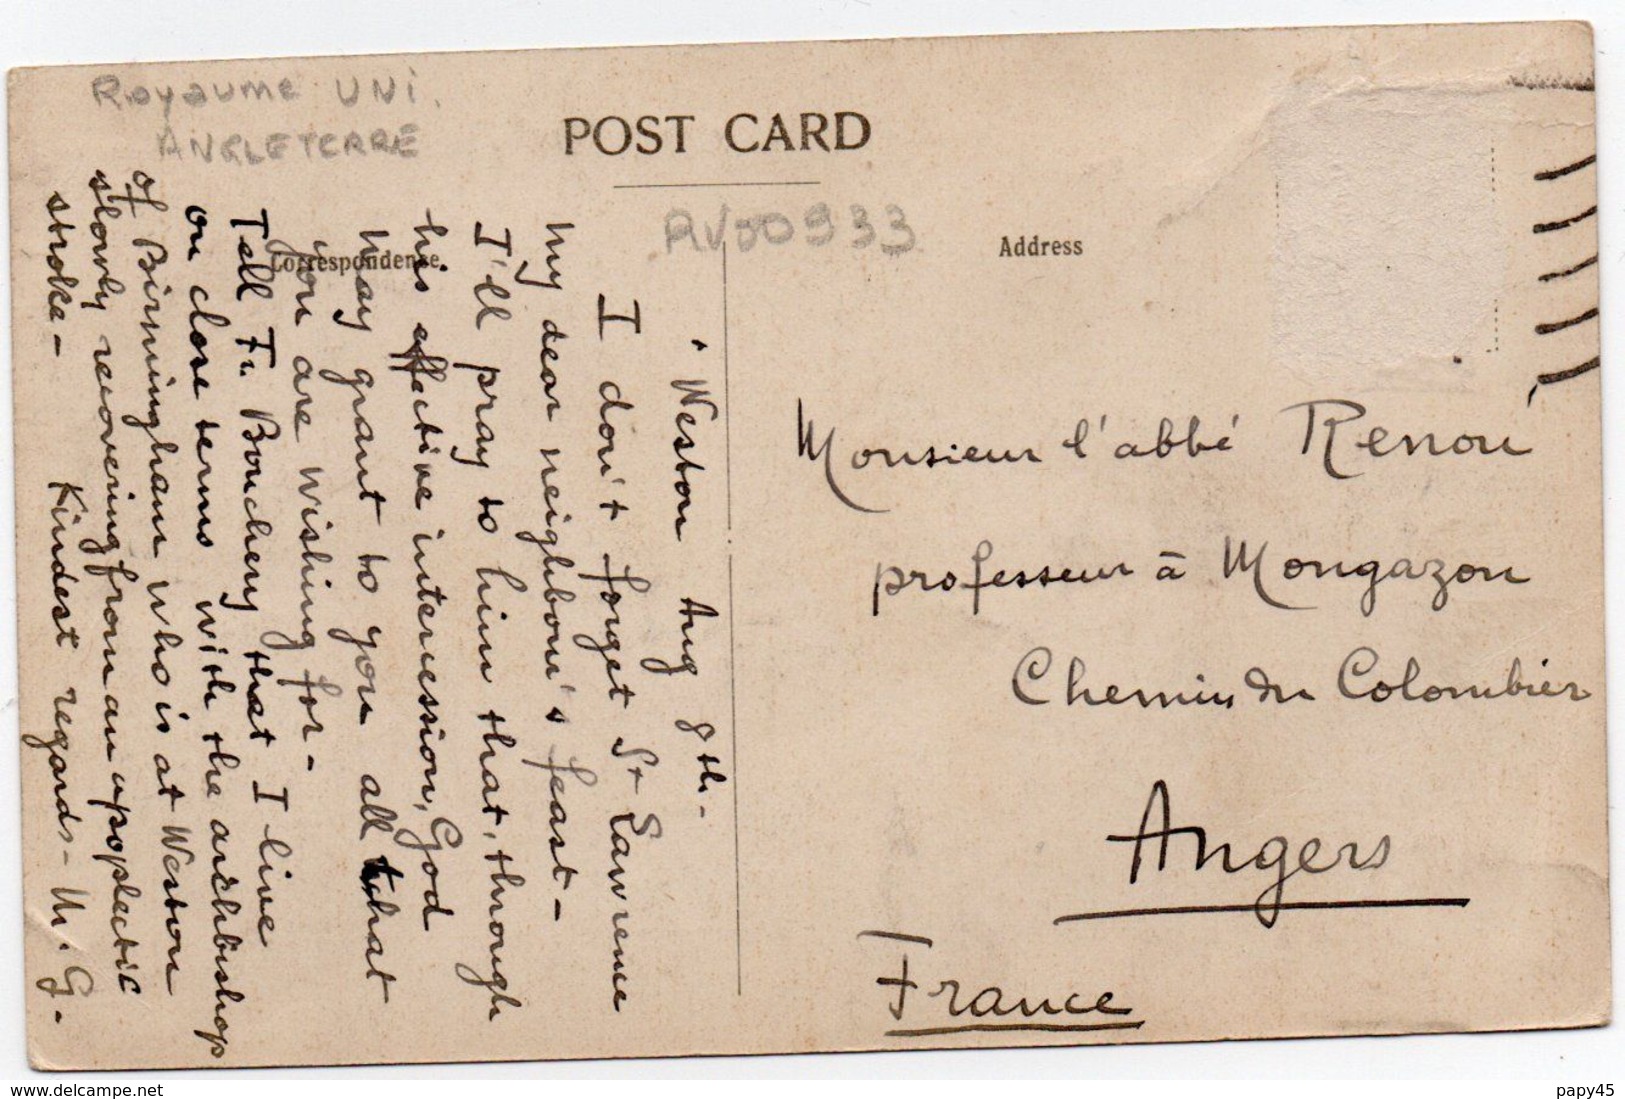 Royaume UNi.
ANGLETERRE
POST CARD
AV00933
Correspondence
Address
Weston Aug 9th.
I don't forget St Lawrence
my dear neighbour's feast -
I'll pray to him that, through
his effective intercession, God
may grant to you all that
you are wishing for -
Tell Fr. Bouchery that I live
on close terms with the archbishop
of Birmingham who is at Weston
slowly recovering from an apoplectic
stroke - Kindest regards - M. G.
Monsieur l'abbé Renou
professeur à Mongazon
Chemin du Colombier
Angers
France
papy45